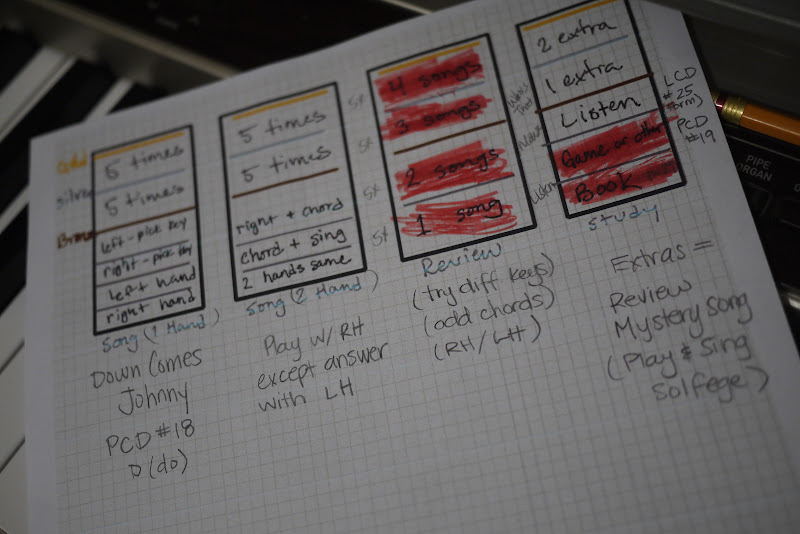 Gold
Silver
Bronze
5 times
5 times
left - pick key
right - pick key
left hand
right hand
Song (1 Hand)
Down Comes
Johnny
PCD #18
D (do)
5 times
5 times
right + chord
chord + sing
2 hands same
Song (2 Hand)
Play w/ RH
except answer
with LH
5x
5x
5x
4 songs
3 songs
2 songs
1 song
Review
(try diff keys)
(odd chords)
(RH/LH)
2 extra
1 extra
Listen
Game or other
Book
Study
LCD
#25
PCD
#19
Extras =
Review
Mystery Song
(Play & Sing
Solfege)
PIPE
ORGAN